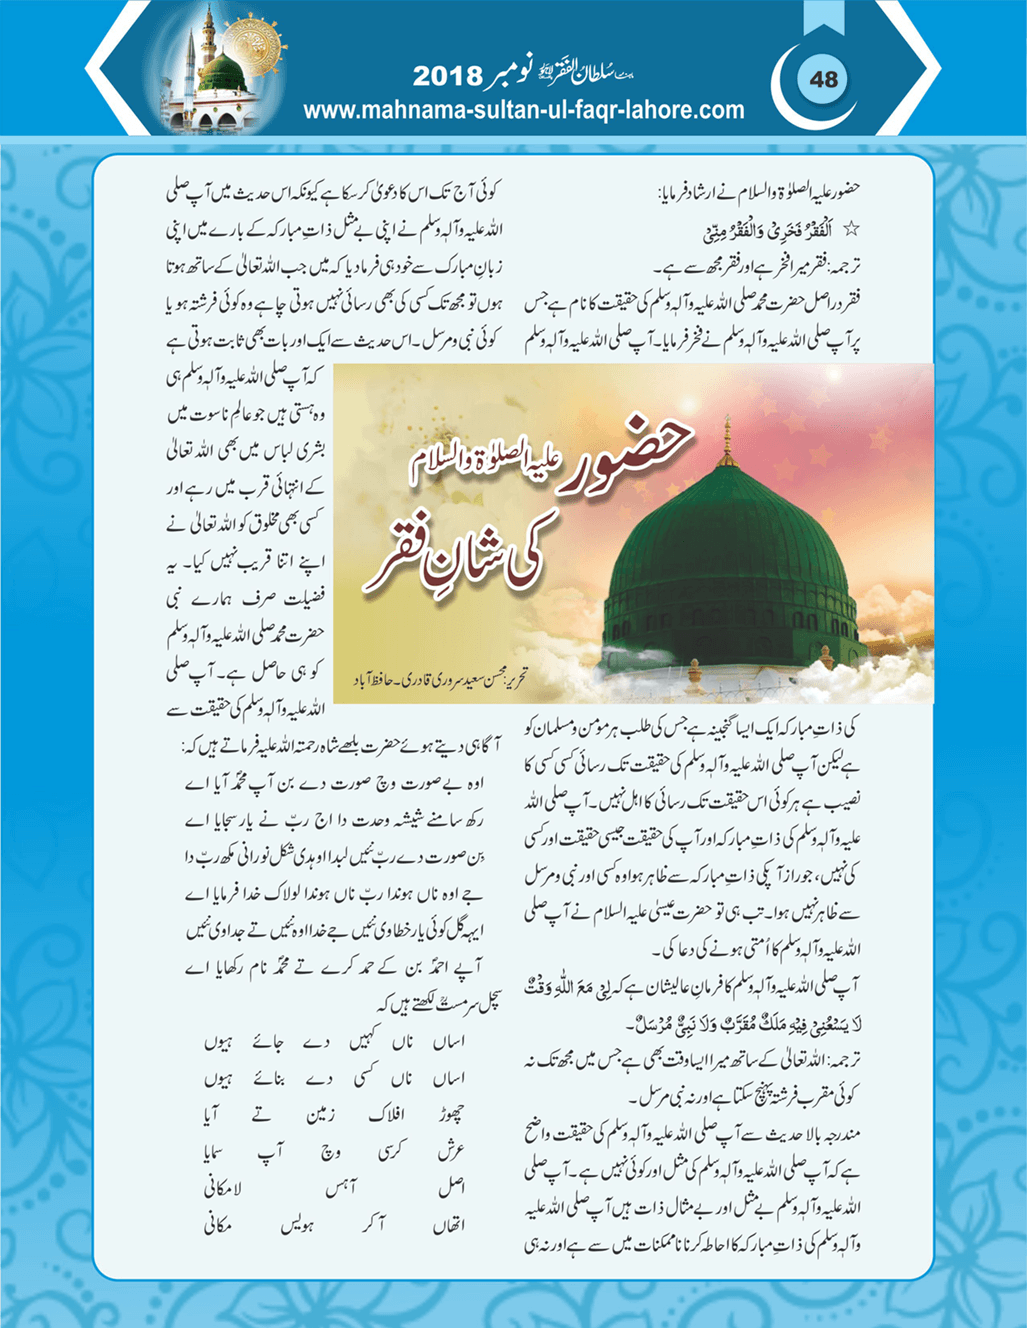 ماہنامہ سُلطان الفقر لاہور نومبر 2018
48
www.mahnama-sultan-ul-faqr-lahore.com
حضور علیہ الصلوٰۃ والسلام نے ارشاد فرمایا:
☆ اَلْفَقْرُ فَخْرِیْ وَالْفَقْرُ مِنِّیْ
ترجمہ: فقر میرا فخر ہے اور فقر مجھ سے ہے۔
فقر دراصل حضرت محمد صلی اللہ علیہ وآلہٖ وسلم کی حقیقت کا نام ہے جس
پر آپ صلی اللہ علیہ وآلہٖ وسلم نے فخر فرمایا۔ آپ صلی اللہ علیہ وآلہٖ وسلم
حضور علیہ الصلوٰۃ والسلام
کی شانِ فقر
تحریر: محسن سعید سروری قادری۔ حافظ آباد
کی ذاتِ مبارکہ ایک ایسا گنجینہ ہے جس کی طلب ہر مومن و مسلمان کو
ہے لیکن آپ صلی اللہ علیہ وآلہٖ وسلم کی حقیقت تک رسائی کسی کسی کا
نصیب ہے ہر کوئی اس حقیقت تک رسائی کا اہل نہیں۔ آپ صلی اللہ
علیہ وآلہٖ وسلم کی ذاتِ مبارکہ اور آپ کی حقیقت جیسی حقیقت اور کسی
کی نہیں، جو راز آپکی ذاتِ مبارکہ سے ظاہر ہوا وہ کسی اور نبی و مرسل
سے ظاہر نہیں ہوا۔ تب ہی تو حضرت عیسیٰ علیہ السلام نے آپ صلی
اللہ علیہ وآلہٖ وسلم کا اُمتی ہونے کی دعا کی۔
آپ صلی اللہ علیہ وآلہٖ وسلم کا فرمانِ عالیشان ہے کہ لِیْ مَعَ اللّٰہِ وَقْتٌ
لَا یَسْعُنِیْ فِیْہِ مَلَکٌ مُقَرَّبٌ وَلَا نَبِیٌّ مُرْسَلٌ۔
ترجمہ: اللہ تعالیٰ کے ساتھ میرا ایسا وقت بھی ہے جس میں مجھ تک نہ
کوئی مقرب فرشتہ پہنچ سکتا ہے اور نہ نبی مرسل۔
مندرجہ بالا حدیث سے آپ صلی اللہ علیہ وآلہٖ وسلم کی حقیقت واضح
ہے کہ آپ صلی اللہ علیہ وآلہٖ وسلم کی مثل اور کوئی نہیں ہے۔ آپ صلی
اللہ علیہ وآلہٖ وسلم بے مثل اور بے مثال ذات ہیں آپ صلی اللہ علیہ
وآلہٖ وسلم کی ذاتِ مبارکہ کا احاطہ کرنا ناممکنات میں سے ہے اور نہ ہی
کوئی آج تک اس کا دعویٰ کر سکا ہے کیونکہ اس حدیث میں آپ صلی
اللہ علیہ وآلہٖ وسلم نے اپنی بے مثل ذاتِ مبارکہ کے بارے میں اپنی
زبانِ مبارک سے خود ہی فرما دیا کہ میں جب اللہ تعالیٰ کے ساتھ ہوتا
ہوں تو مجھ تک کسی کی بھی رسائی نہیں ہوتی چاہے وہ کوئی فرشتہ ہو یا
کوئی نبی و مرسل۔ اس حدیث سے ایک اور بات بھی ثابت ہوتی ہے
کہ آپ صلی اللہ علیہ وآلہٖ وسلم ہی
وہ ہستی ہیں جو عالمِ ناسوت میں
بشری لباس میں بھی اللہ تعالیٰ
کے انتہائی قرب میں رہے اور
کسی بھی مخلوق کو اللہ تعالیٰ نے
اپنے اتنا قریب نہیں کیا۔ یہ
فضیلت صرف ہمارے نبی
حضرت محمد صلی اللہ علیہ وآلہٖ وسلم
کو ہی حاصل ہے۔ آپ صلی
اللہ علیہ وآلہٖ وسلم کی حقیقت سے
آگاہی دیتے ہوئے حضرت بلھے شاہ رحمتہ اللہ علیہ فرماتے ہیں کہ:
اوہ بے صورت وچ صورت دے بن آپ محمدؐ آیا اے
رکھ سامنے شیشہ وحدت دا اج ربّ نے یار سجایا اے
بِن صورت دے ربّ نئیں لبدا اوہدی شکل نورانی مکھ ربّ دا
جے اوہ ناں ہوندا ربّ ناں ہوندا لولاک خدا فرمایا اے
ایہہ گل کوئی یار خطا وی نئیں جے خدا اوہ نئیں تے جدا وی نئیں
آپے احمدؐ بن کے حمد کرے تے محمدؐ نام رکھایا اے
سچل سرمستؒ لکھتے ہیں کہ
اساں ناں کہیں دے جائے ہیوں
اساں ناں کسی دے بنائے ہیوں
چھوڑ افلاک زمین تے آیا
عرش کرسی وچ آپ سمایا
اصل آہس لامکانی
اتھاں آکر ہویس مکانی